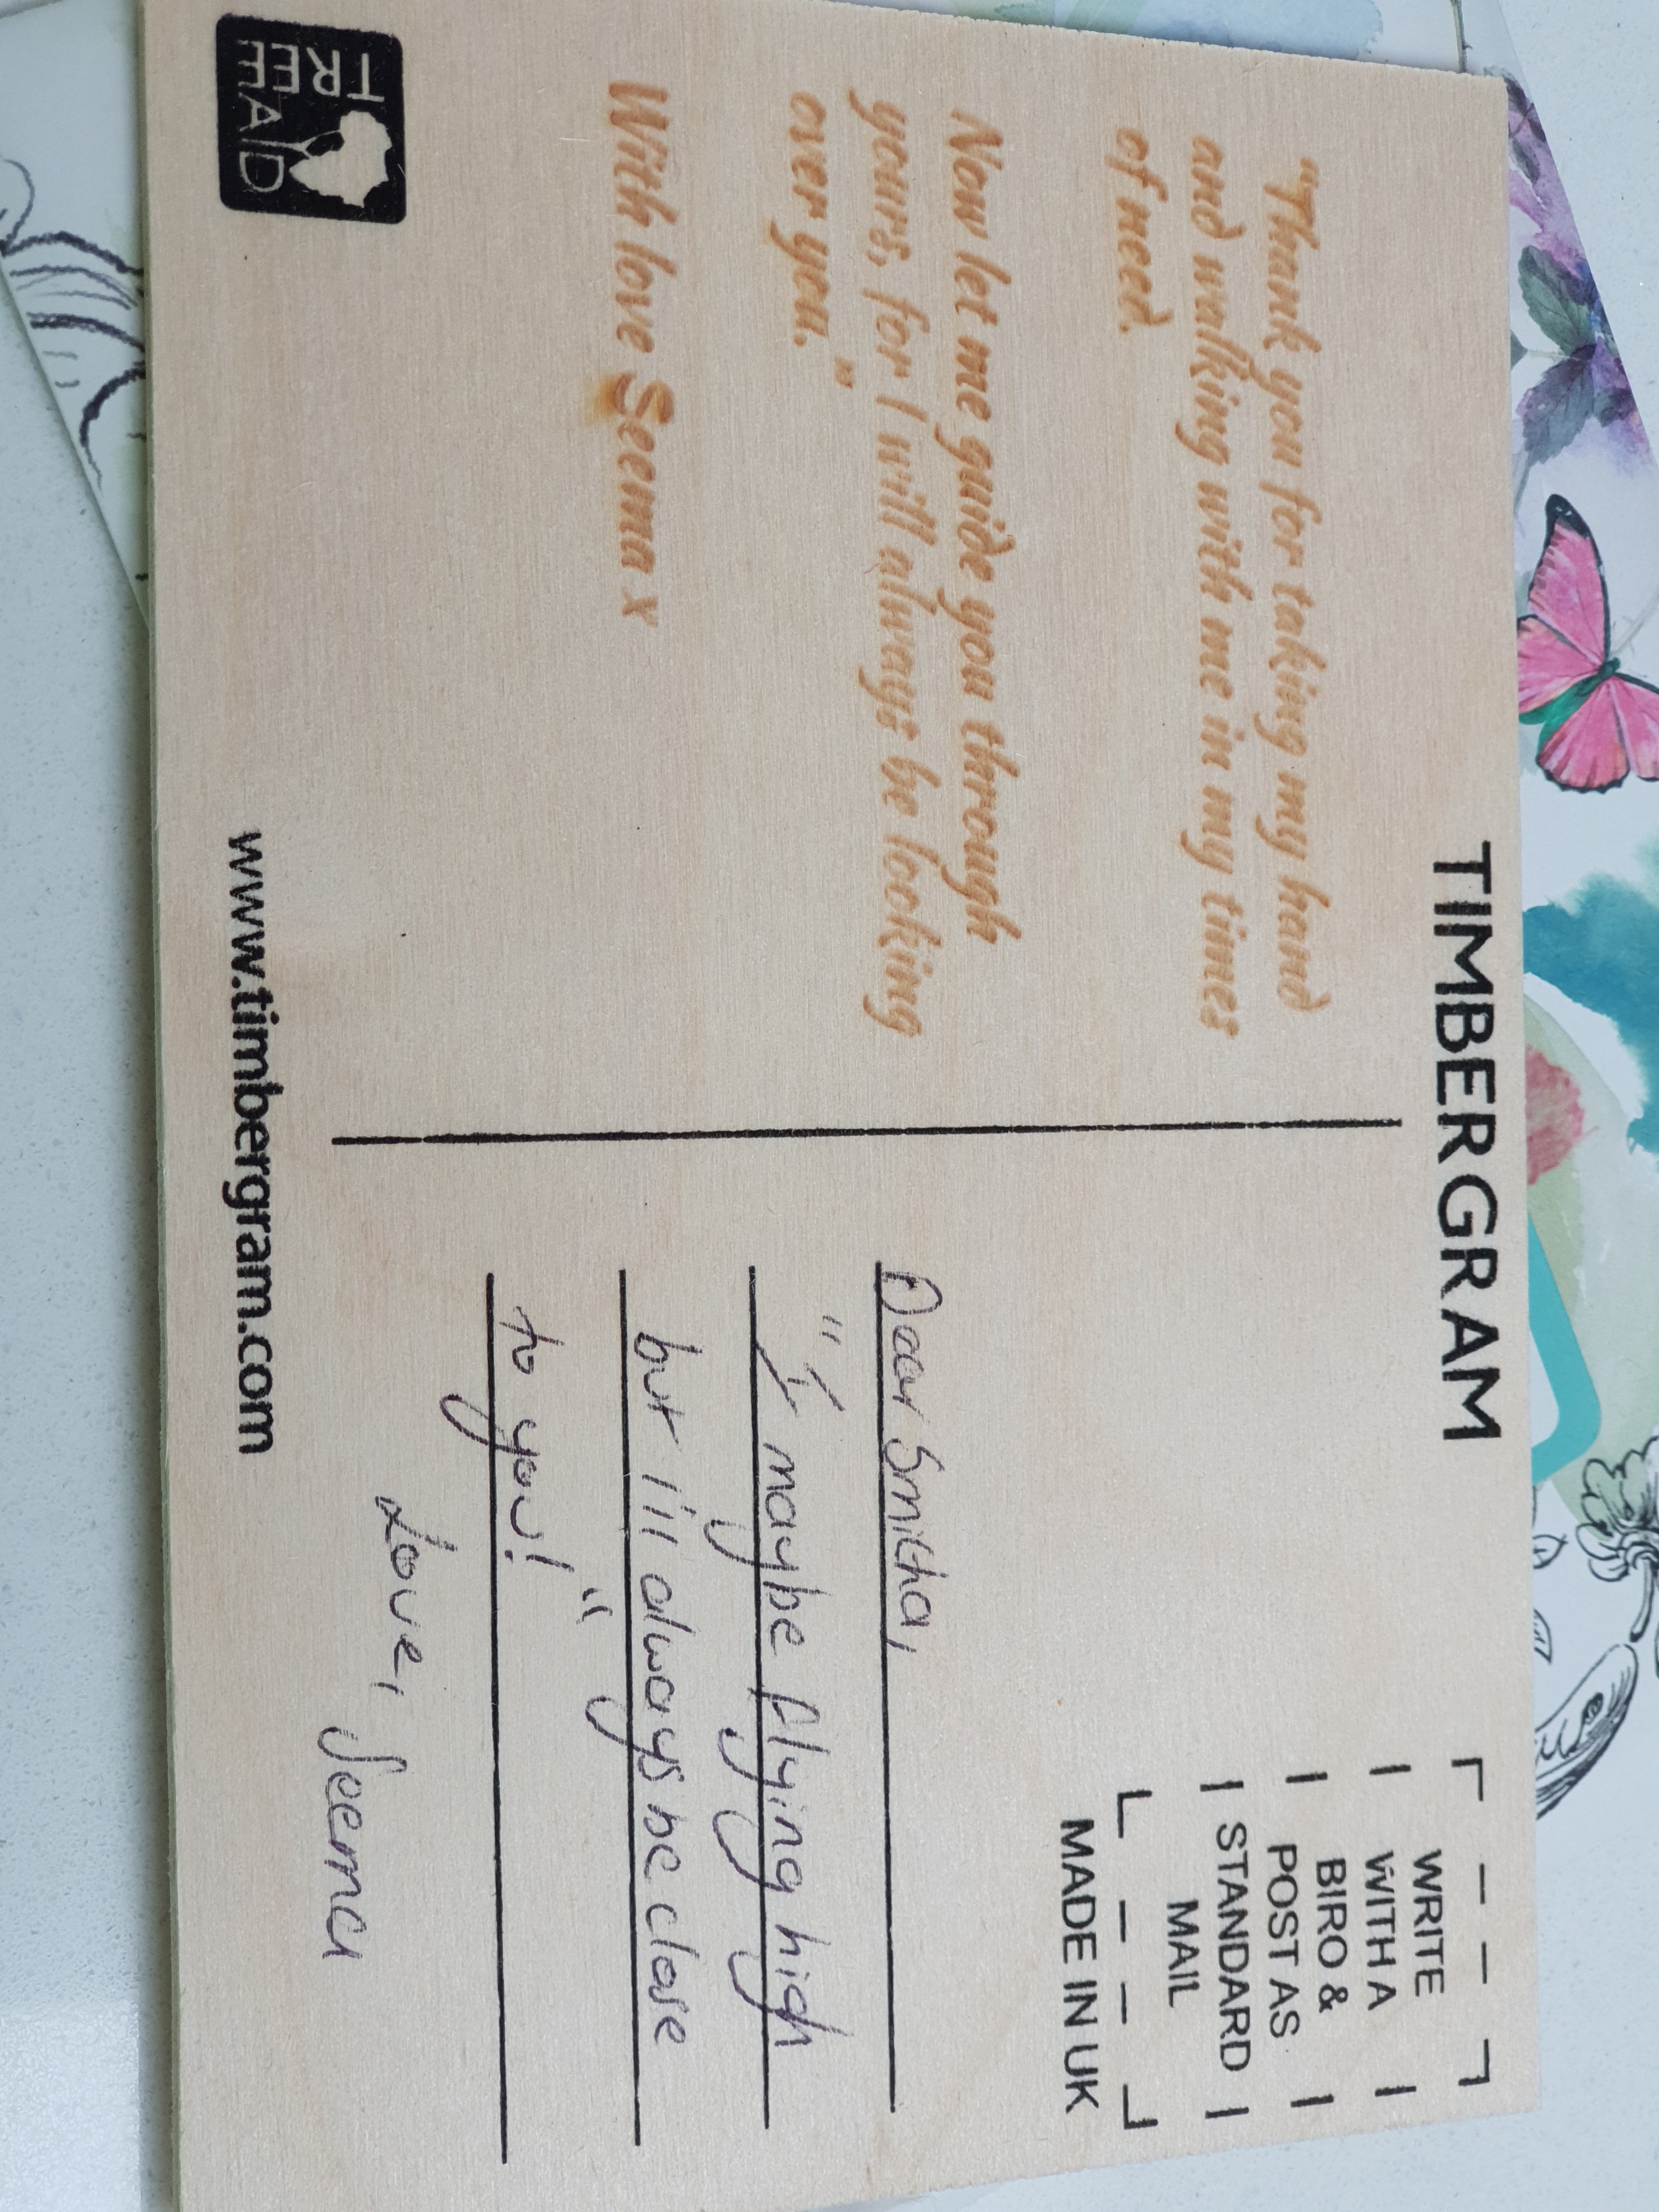 TIMBERGRAM
"Thank you for taking my hand
and walking with me in my times
of need.
Now let me guide you through
yours, for I will always be looking
over you."
With love Seema x
TREE AID
WRITE
WITH A
BIRO &
POST AS
STANDARD
MAIL
MADE IN UK
Dear Smitha,
"I maybe flying high
but i'll always be close
to you!"
Love, Seema
www.timbergram.com